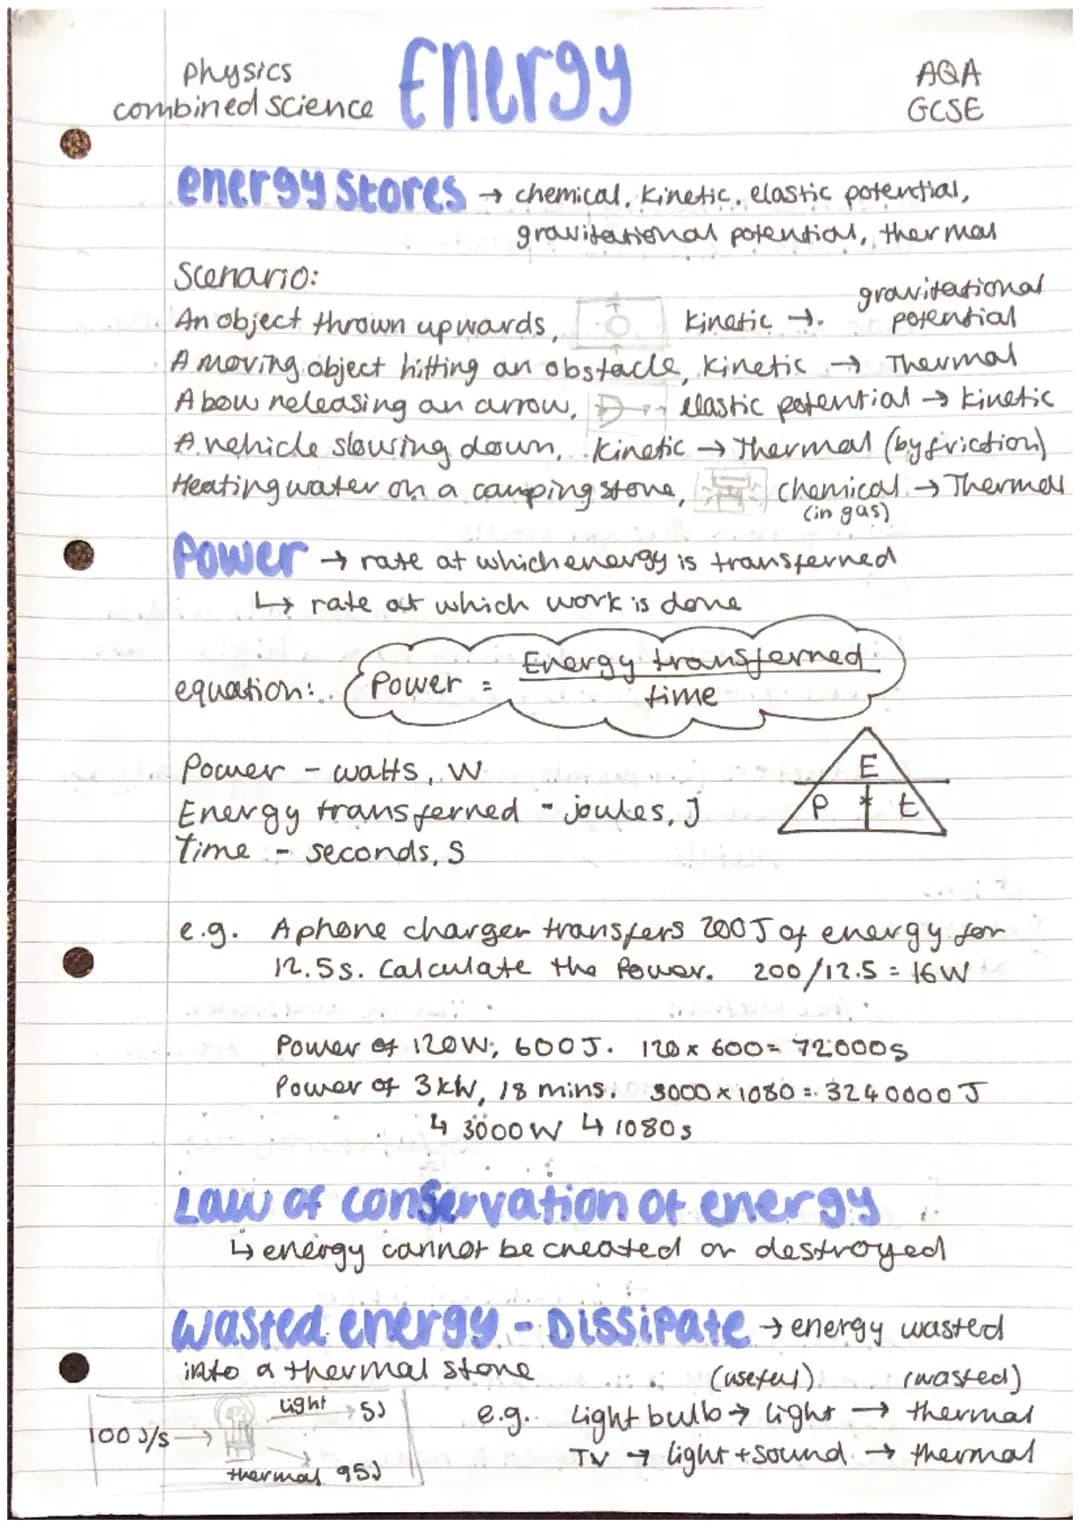 Physics
combined science
Energy
AQA
GCSE
energy stores → chemical, kinetic, elastic potential,
gravitational potential, thermal
Scenario:
An object thrown upwards, kinetic → gravitational potential
A moving object hitting an obstacle, kinetic → Thermal
A bow releasing an arrow, elastic potential → kinetic
A vehicle slowing down, kinetic → Thermal (by friction)
Heating water on a camping stove, chemical → Thermal
(in gas)
Power → rate at which energy is transferred
↳ rate at which work is done
equation: Power = Energy transferred
time
Power - watts, W
Energy transferred - joules, J
Time - seconds, S
E
P * t
e.g. A phone charger transfers 200J of energy for
12.5s. Calculate the Power. 200/12.5 = 16W
Power of 120W, 600J. 120 x 600 = 72000s
Power of 3kW, 18 mins. 3000 x 1080 = 3240000J
↳ 3000W ↳ 1080s
Law of conservation of energy
↳ energy cannot be created or destroyed
Wasted energy - Dissipate → energy wasted
into a thermal store
(useful) (wasted)
e.g. Light bulb → light → thermal
TV → light + sound → thermal
100 J/s → light → 5J
thermal 95J